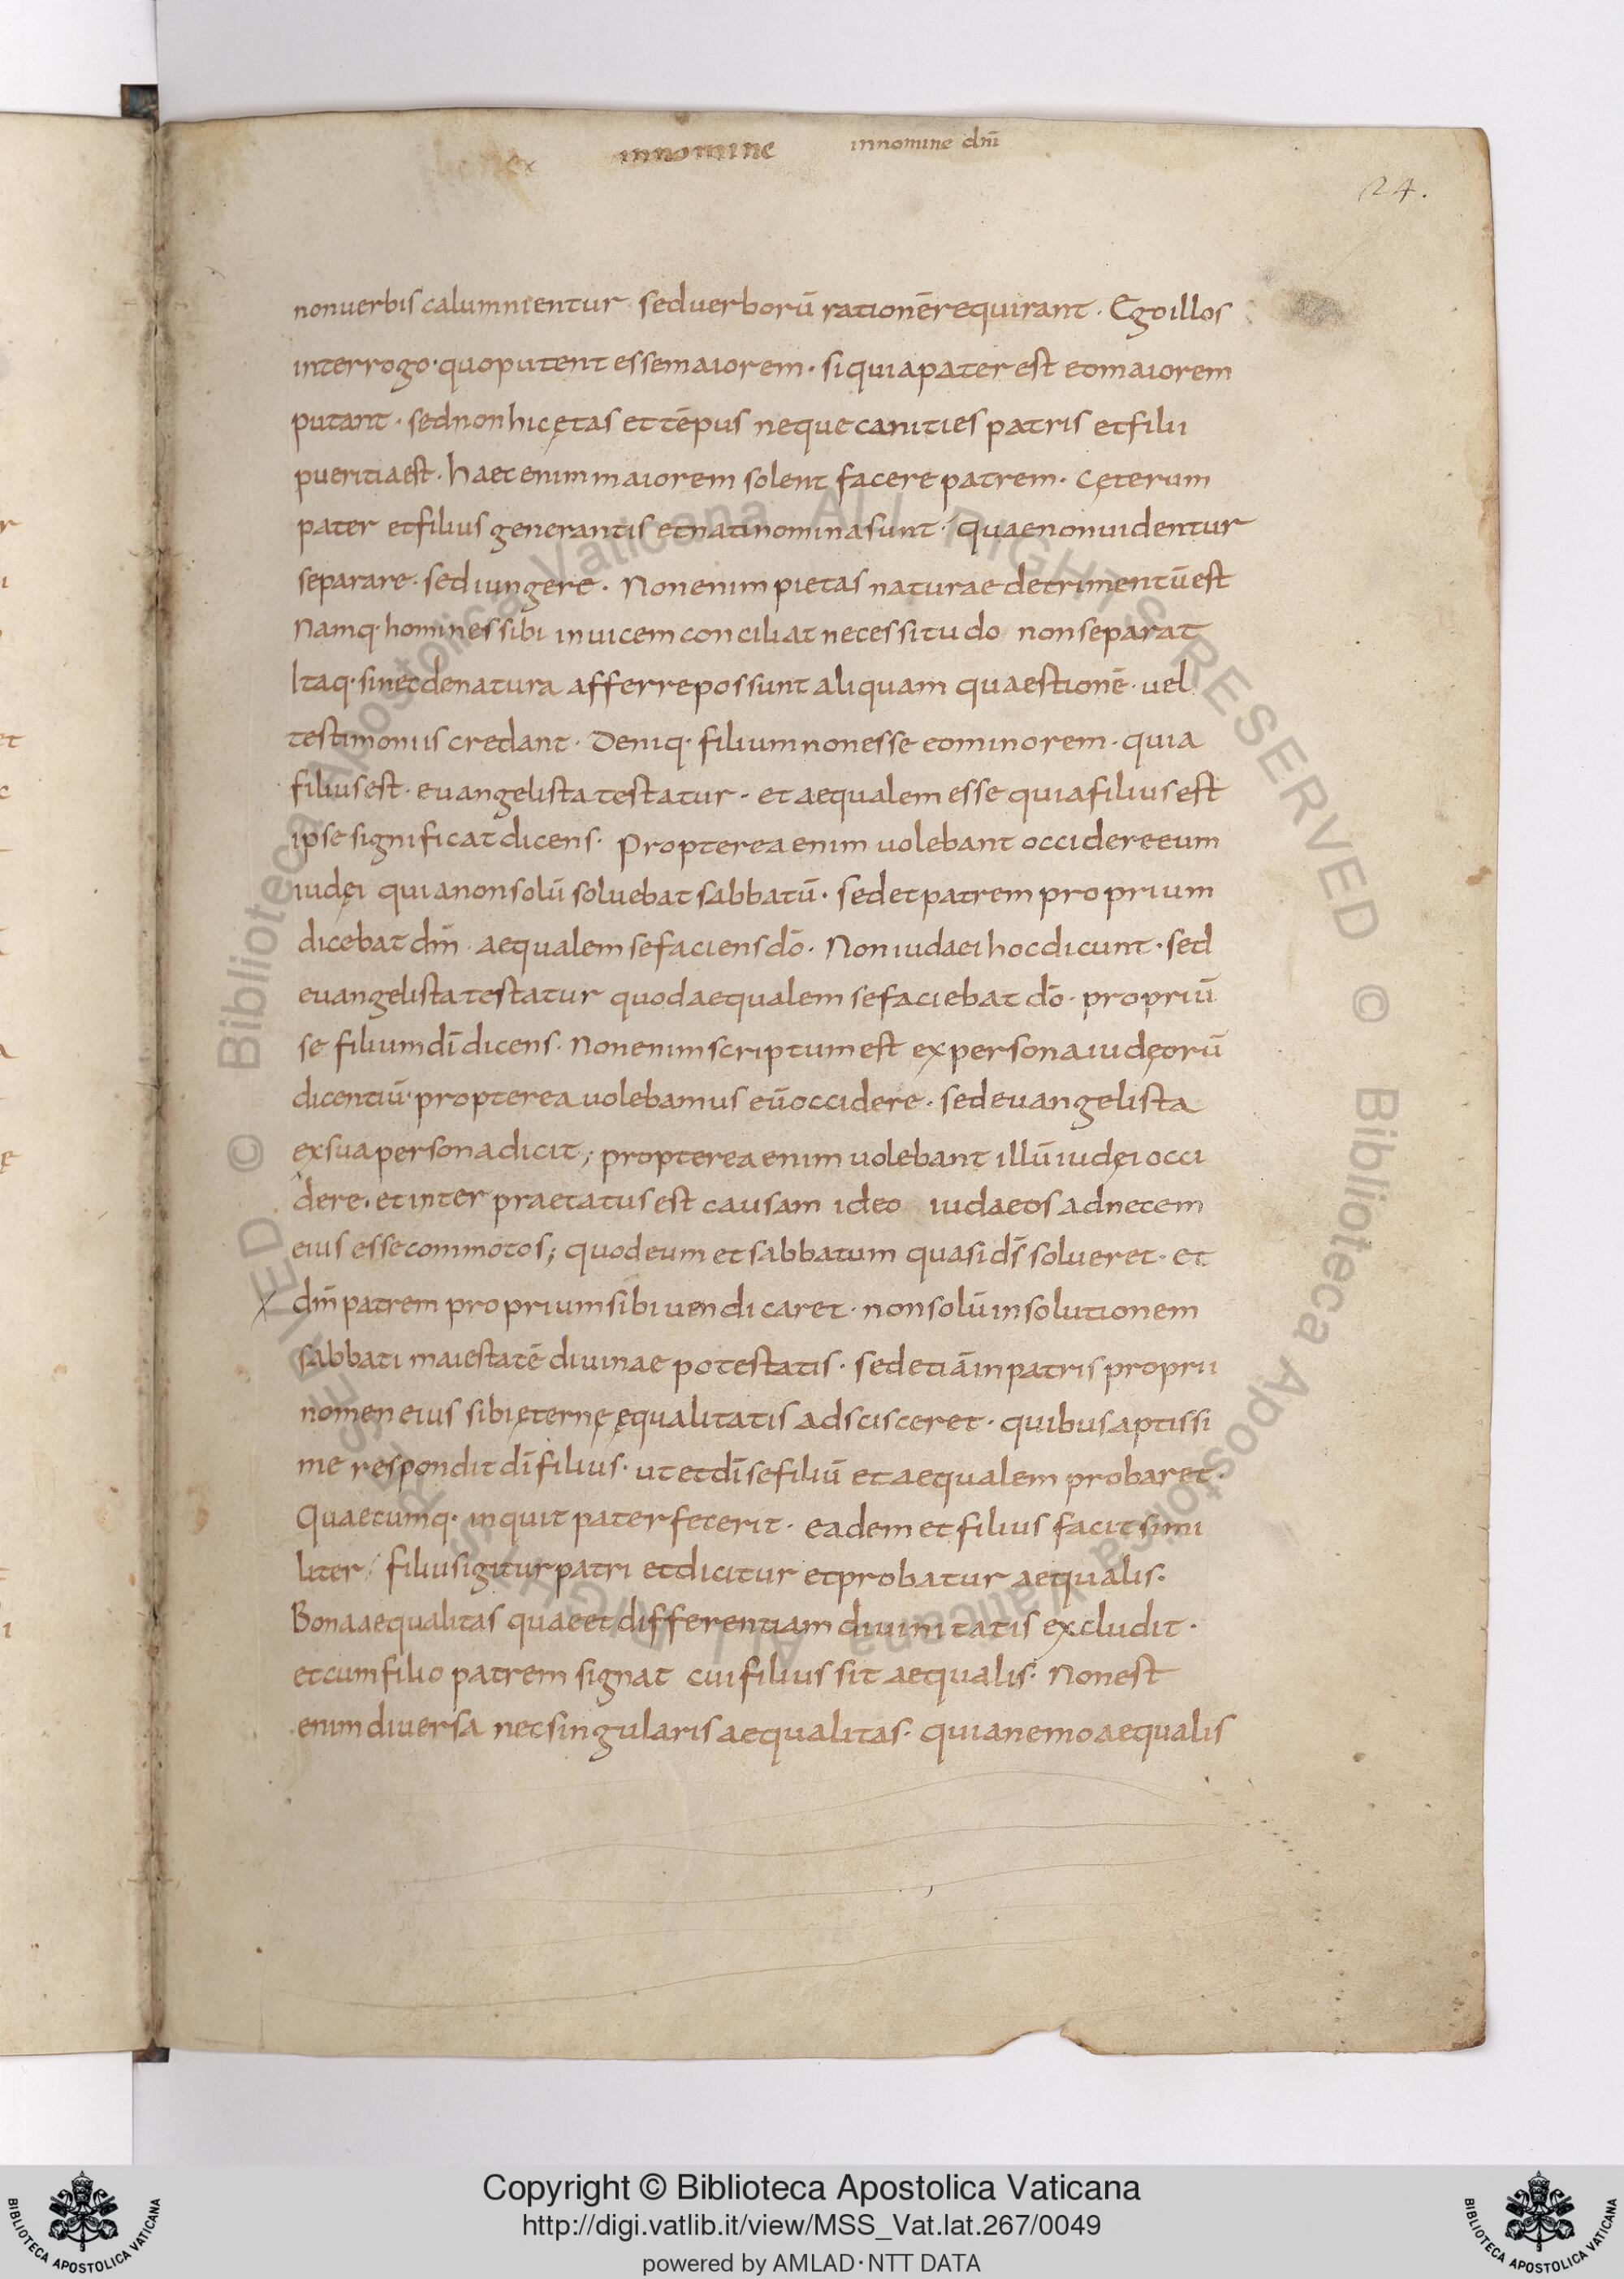 innomine innomine dnī
24.
non uerbis calumnientur · sed uerborū rationē requirant · Ego illos
interrogo · quo putent esse maiorem · si quia pater est eo maiorem
putant · sed non hic ętas et tēpus neque canities patris et filii
pueritia est · haec enim maiorem solent facere patrem · Cęterum
pater et filius generantis et nati nomina sunt · quae non uidentur
separare · sed iungere · Non enim pietas naturae detrimentū est
Namq· homines sibi inuicem conciliat necessitudo non separat
Itaq· si nec de natura afferre possunt aliquam quaestionē · uel
testimoniis credant · Deniq· filium non esse eo minorem · quia
filius est · euangelista testatur · et aequalem esse quia filius est
ipse significat dicens · Propterea enim uolebant occidere eum
iudęi quia non solū soluebat sabbatū · sed et patrem proprium
dicebat dm̄ · aequalem se faciens dō · Non iudaei hoc dicunt · sed
euangelista testatur quod aequalem se faciebat dō · propriū
se filium dī dicens · Non enim scriptum est ex persona iudęorū
dicentiū · propterea uolebamus eū occidere · sed euangelista
ex sua persona dicit ; propterea enim uolebant illū iudęi occi
dere · et interpraetatus est causam ideo iudaeos ad necem
eius esse commotos ; quod eum et sabbatum quasi ds̄ solueret · et
dm̄ patrem proprium sibi uendicaret · non solū in solutionem
sabbati maiestatē diuinae potestatis · sed etiā in patris proprii
nomen eius sibi ęternę ęqualitatis adscisceret · quibus aptissi
me respondit dī filius · ut et dī se filiū et aequalem probaret ·
Quaecumq· inquit pater fecerit · eadem et filius facit simi
liter / filius igitur patri et dicitur et probatur aequalis ·
Bona aequalitas quae et differentiam diuinitatis excludit ·
et cum filio patrem signat cui filius sit aequalis · Non est
enim diuersa nec singularis aequalitas · quia nemo aequalis
Copyright © Biblioteca Apostolica Vaticana
http://digi.vatlib.it/view/MSS_Vat.lat.267/0049
powered by AMLAD · NTT DATA
BIBLIOTECA APOSTOLICA VATICANA
BIBLIOTECA APOSTOLICA VATICANA
© Biblioteca Apostolica Vaticana ALL RIGHTS RESERVED © Biblioteca Apostolica Vaticana ALL RIGHTS RESERVED